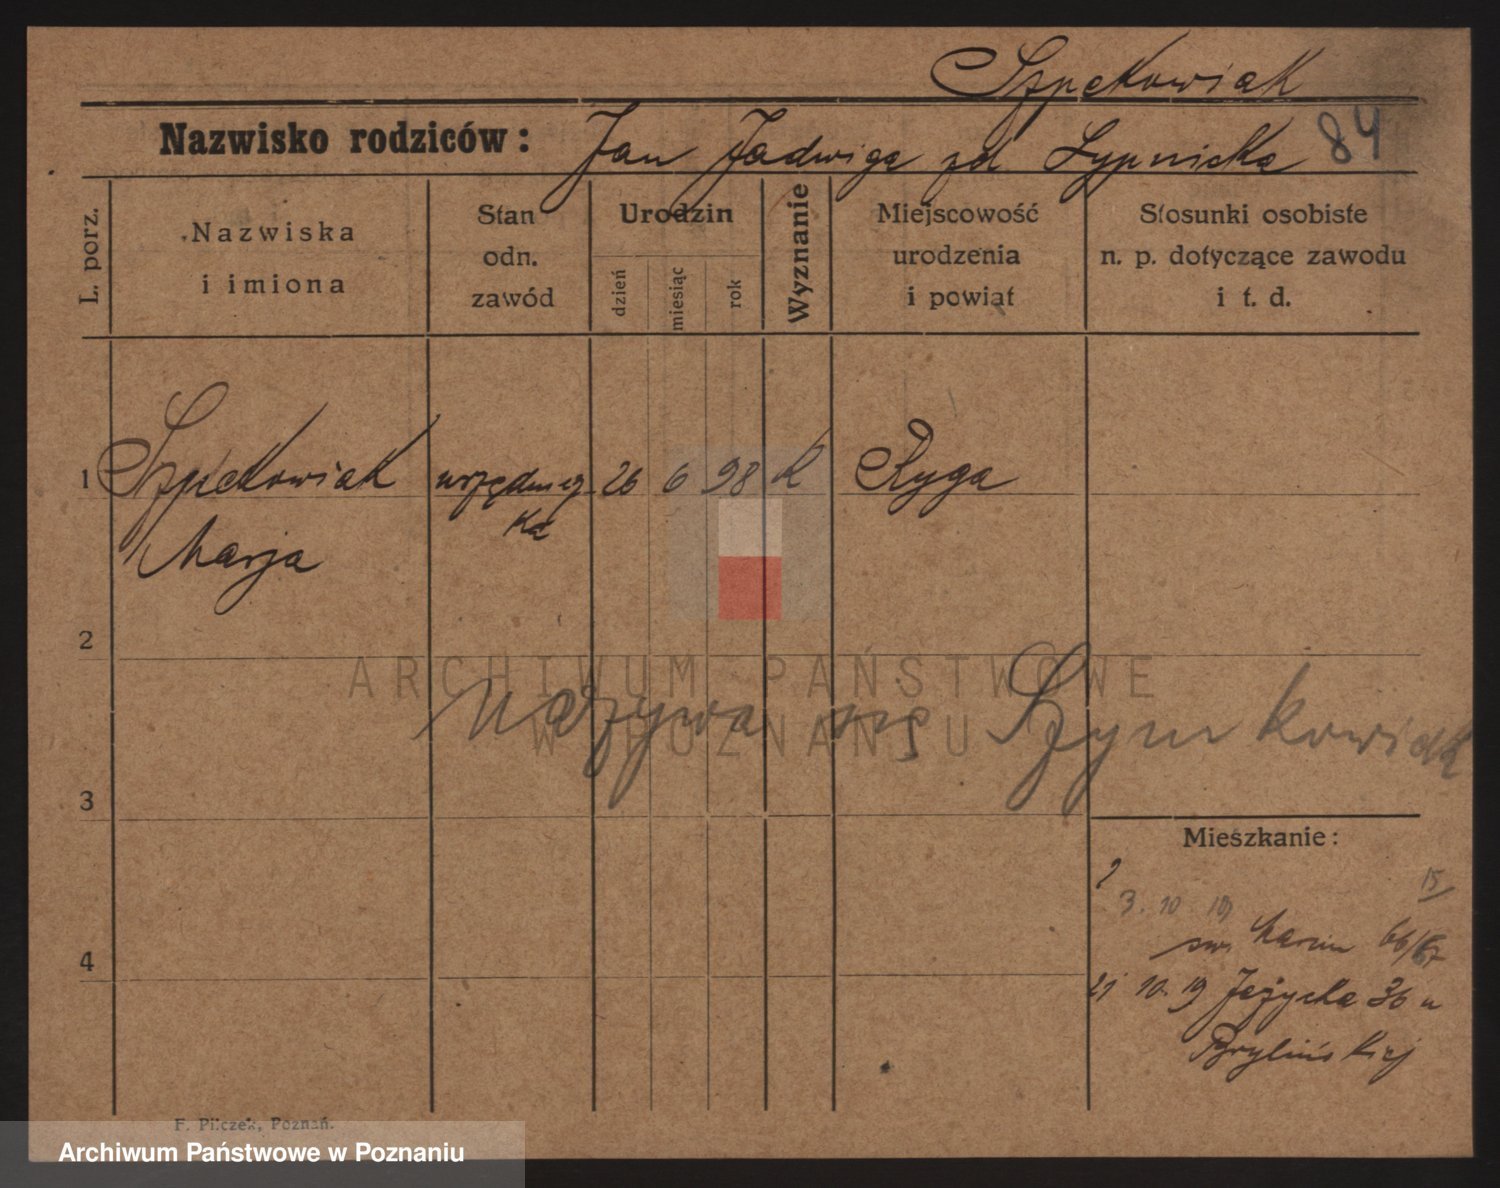 Szpekowiak
Nazwisko rodziców: Jan Jadwiga zd Lypnicka 84
L. porz.
Nazwiska
i imiona
Stan
odn.
zawód
Urodzin
dzień
miesiąc
rok
Wyznanie
Miejscowość
urodzenia
i powiat
Stosunki osobiste
n. p. dotyczące zawodu
i t. d.
1 Szpekowiak urzędnicz 26 6 98 k Ryga
ka
Marja
2
nazywa się Szymkowiak
3
Mieszkanie:
15
3. 10 19
św. Marcin 66/67
4
21 10. 19 Jeżycka 36 u
Brylińskiej
F. Pilczek, Poznań.
ARCHIWUM PAŃSTWOWE
W POZNANIU
Archiwum Państwowe w Poznaniu